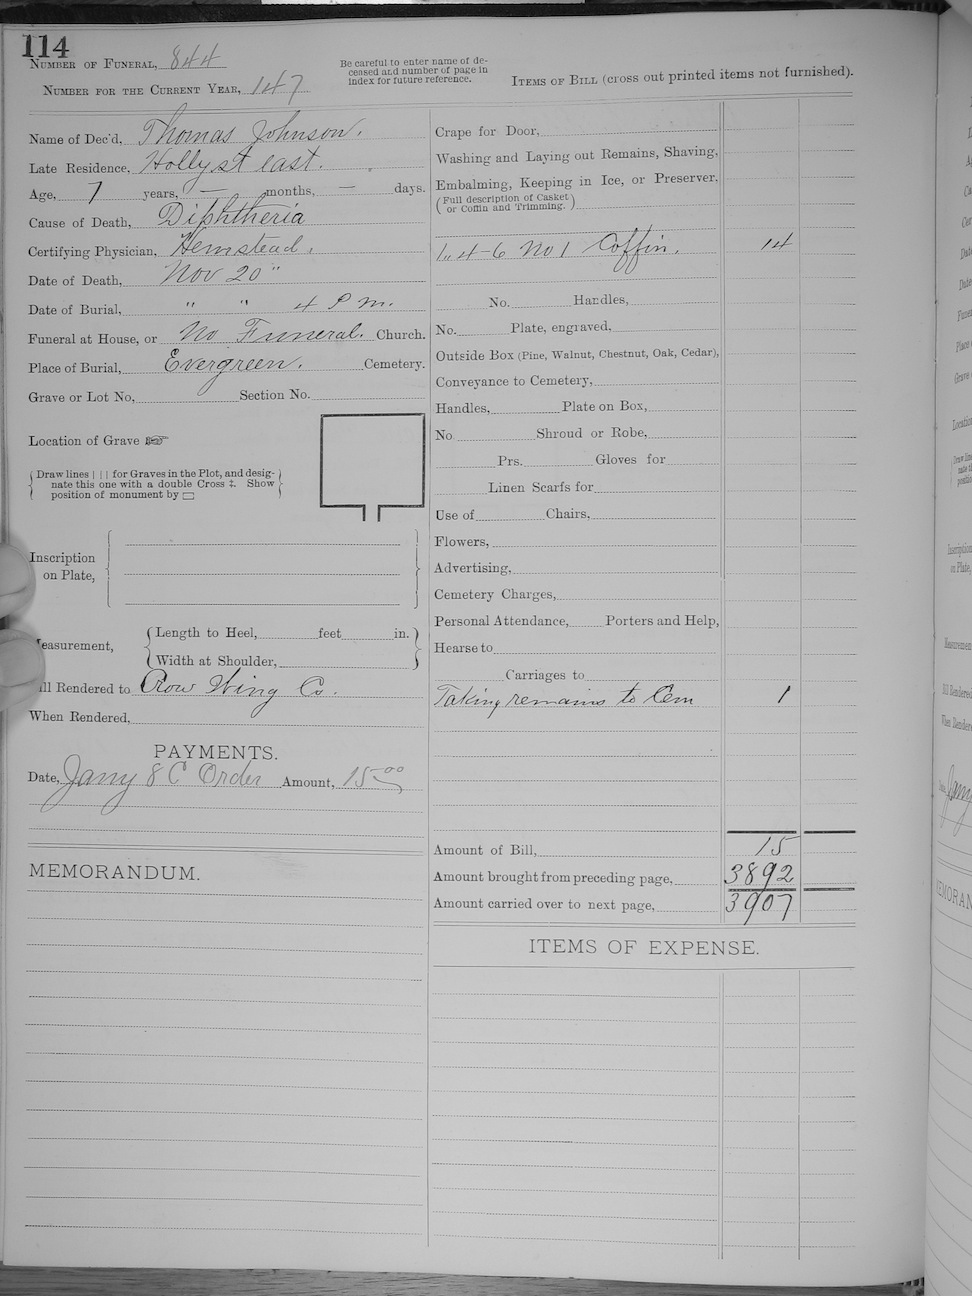 114
NUMBER OF FUNERAL, 844
NUMBER FOR THE CURRENT YEAR, 147
Be careful to enter name of de-
ceased and number of page in
index for future reference.
ITEMS OF BILL (cross out printed items not furnished).
Name of Dec'd, Thomas Johnson.
Late Residence, Holly st east.
Age, 7 years, — months, — days.
Cause of Death, Diphtheria
Certifying Physician, Hemstead.
Date of Death, Nov 20"
Date of Burial, " " 4 P m.
Funeral at House, or No Funeral. Church.
Place of Burial, Evergreen. Cemetery.
Grave or Lot No, Section No.
Location of Grave ☞
Draw lines | | | for Graves in the Plot, and desig-
nate this one with a double Cross ‡. Show
position of monument by ▭
Inscription
on Plate,
easurement,
Length to Heel, feet in.
Width at Shoulder,
ll Rendered to Crow Wing Co.
When Rendered,
PAYMENTS.
Date, Jany 8 C Order Amount, 15 00
MEMORANDUM.
Crape for Door,
Washing and Laying out Remains, Shaving,
Embalming, Keeping in Ice, or Preserver,
(Full description of Casket
or Coffin and Trimming.)
4-6 No 1 Coffin. 14
No. Handles,
No. Plate, engraved,
Outside Box (Pine, Walnut, Chestnut, Oak, Cedar),
Conveyance to Cemetery,
Handles, Plate on Box,
No. Shroud or Robe,
Prs. Gloves for
Linen Scarfs for
Use of Chairs,
Flowers,
Advertising,
Cemetery Charges,
Personal Attendance, Porters and Help,
Hearse to
Carriages to
Taking remains to Cem 1
Amount of Bill, 15
Amount brought from preceding page, 3892
Amount carried over to next page, 3907
ITEMS OF EXPENSE.